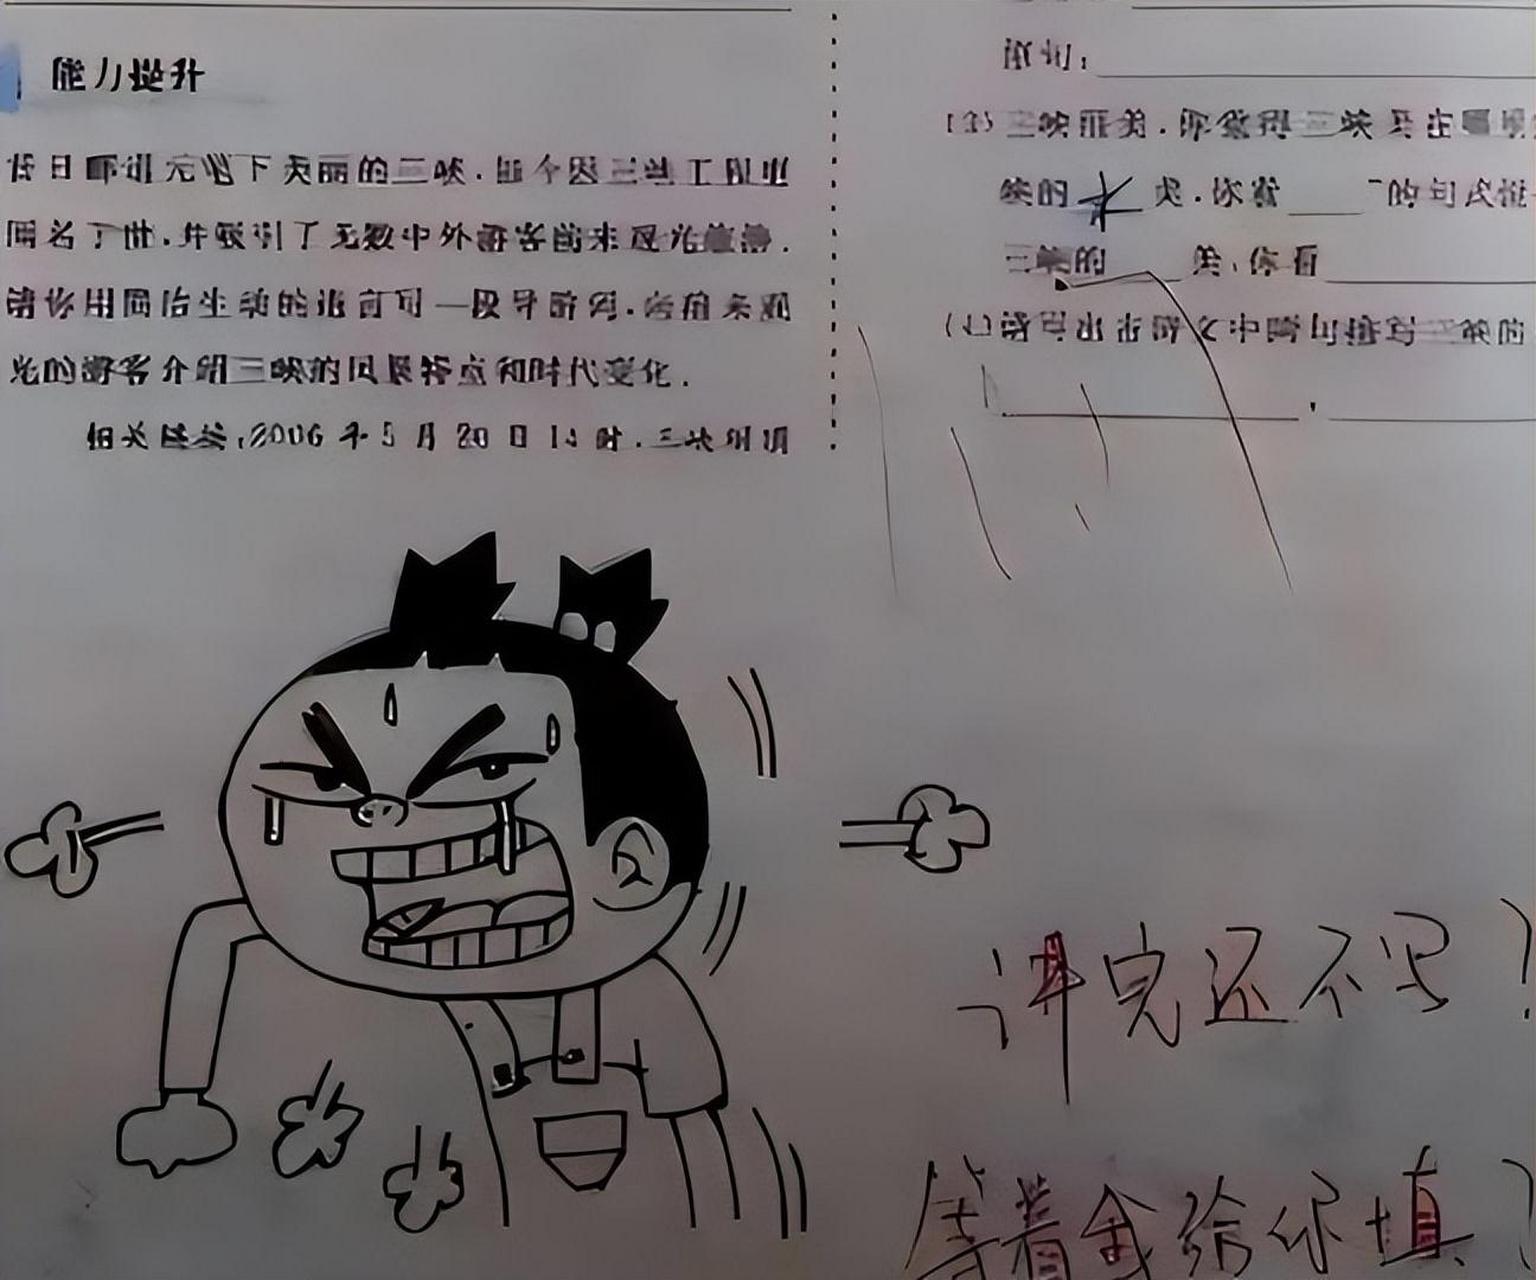 能力提升
昔日郦道元笔下美丽的三峡,如今因三峡工程更
闻名于世,并吸引了无数中外游客前来观光旅游.
请你用简洁生动的语言写一段导游词,向前来观
光的游客介绍三峡的风景特点和时代变化.
相关链接:2006年5月20日14时,三峡
(3)三峡很美.你觉得三峡美在哪
峡的水美.你看____的句式
三峡的____美,你看____
(4)请写出古诗文中
讲完还不写?
等着我给你填?